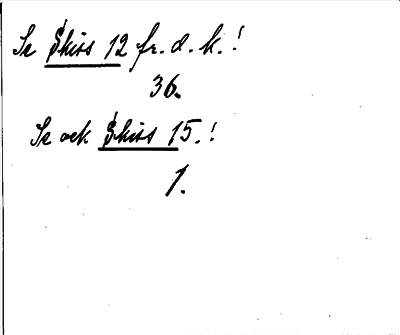 Se Skiss 12 fr. d. k.!
36.
Se ock Skiss 15.!
1.